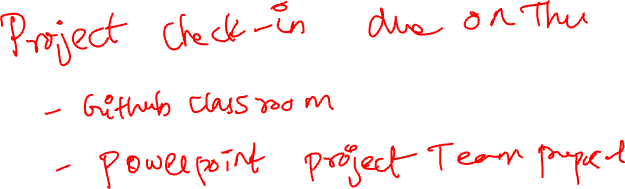 Project check-in due on Thu
- Github classroom
- Powerpoint project Team proposal